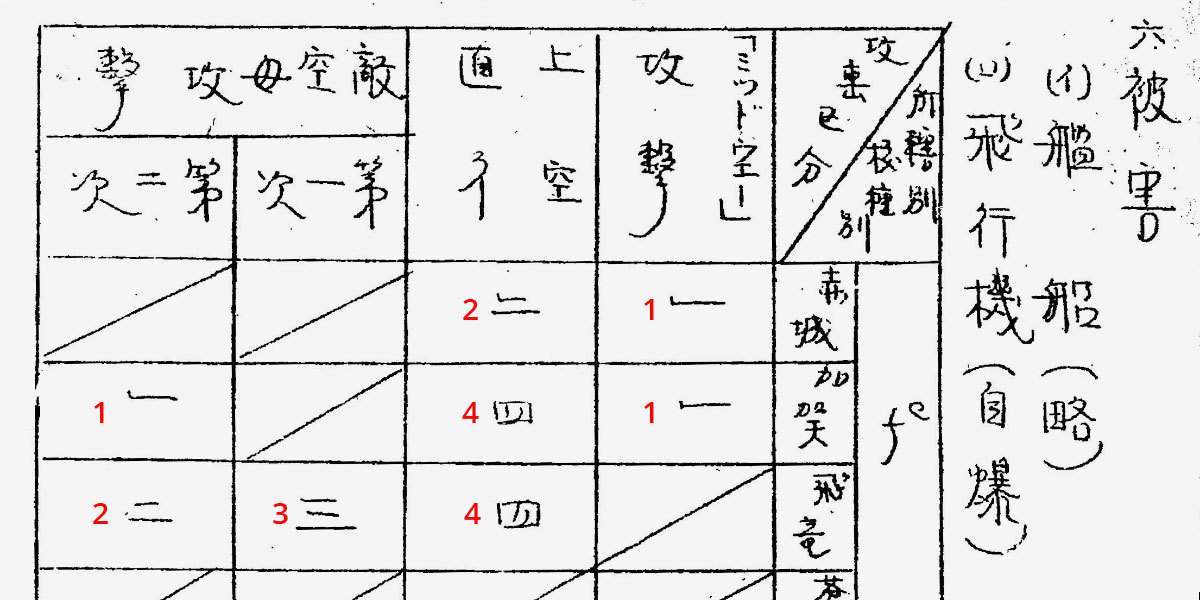 六 被害
(イ)艦船(略)
(ロ)飛行機(自爆)
所轄別
機種別
攻撃区分
「ミッドウエー」
攻撃
上空
直
敵空母攻撃
第一次
第二次
fc
赤城
1 一
2 二
加賀
1 一
4 四
1 一
飛竜
4 四
3 三
2 二